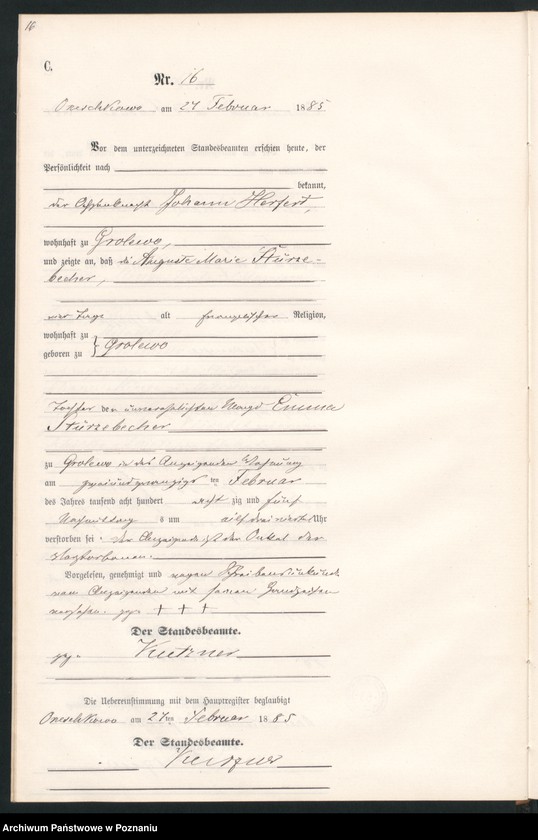 16
C.
Nr. 16
Orzeschkowo am 27 Februar 1885
Vor dem unterzeichneten Standesbeamten erschien heute, der
Persönlichkeit nach
bekannt,
der Johann Herfert,
wohnhaft zu Grolewo,
und zeigte an, daß die Auguste Marie Stürze-
becher,
vier Tage alt evangelischer Religion,
wohnhaft zu
geboren zu } Grolewo
Tochter der unverehelichten Magd Emma
Stürzebecher
zu Grolewo in des Anzeigenden Wohnung
am ten Februar
des Jahres tausend acht hundert acht zig und fünf
Nachmittag s um Uhr
verstorben sei. Der Anzeigende ist der Onkel der
Verstorbenen.
Vorgelesen, genehmigt und wegen Schreibensunkunde
vom Anzeigenden mit seinen Handzeichen
versehen. gez. + + +
Der Standesbeamte.
gez. Kutzner
Die Uebereinstimmung mit dem Hauptregister beglaubigt
Orzeschkowo am 27ten Februar 1885
Der Standesbeamte.
Kutzner
Archiwum Państwowe w Poznaniu